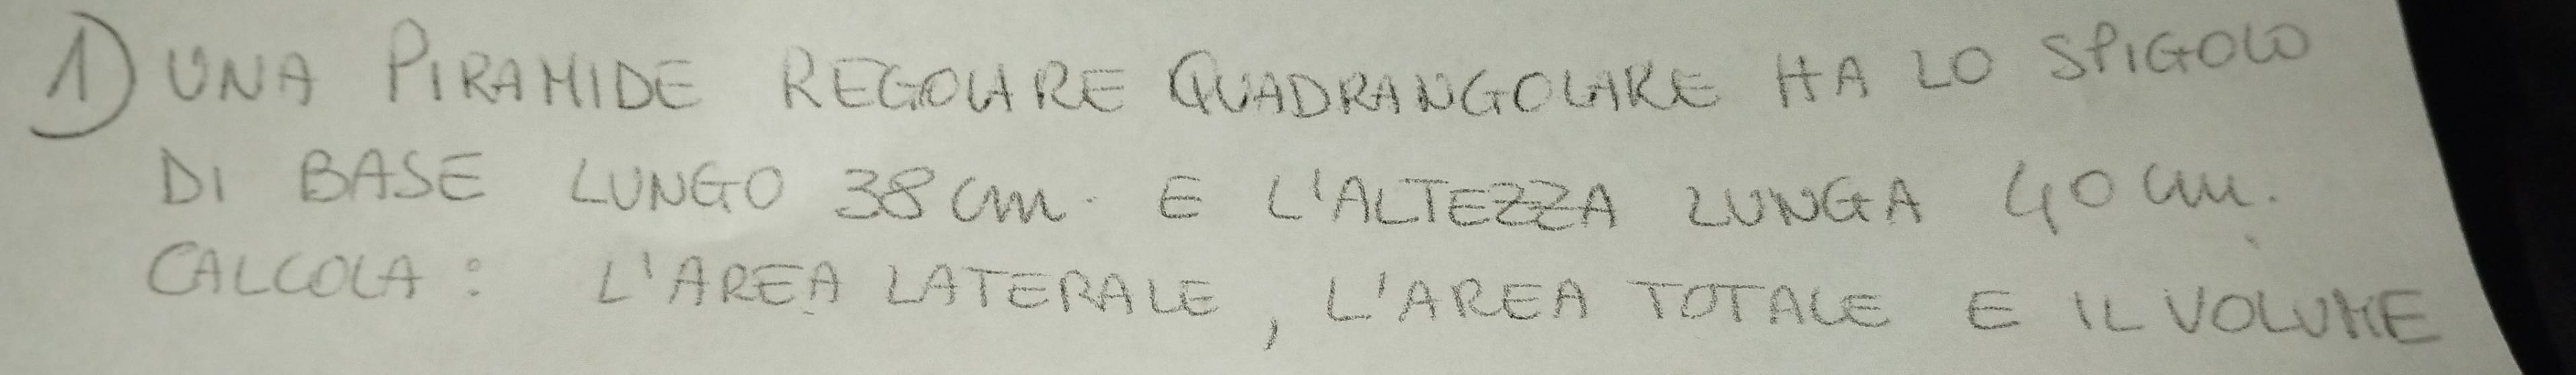 1) UNA PIRAMIDE REGOLARE QUADRANGOLARE HA LO SPIGOLO
DI BASE LUNGO 38 cm. E L'ALTEZZA LUNGA 40 cm.
CALCOLA: L'AREA LATERALE, L'AREA TOTALE E IL VOLUME